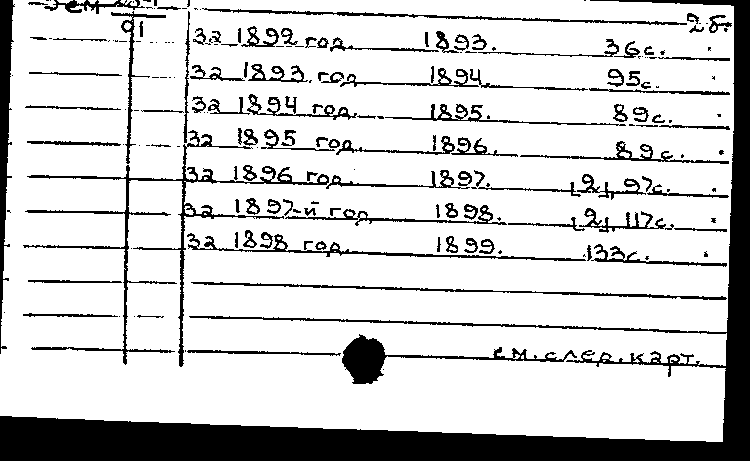 2б.
91
за 1892 год. 1893. 36с.
за 1893 год 1894. 95с.
за 1894 год. 1895. 89с.
за 1895 год. 1896. 89с.
за 1896 год. 1897. [2], 97с.
за 1897-й год 1898. [2], 117с.
за 1898 год. 1899. 133с.
см. след. карт.